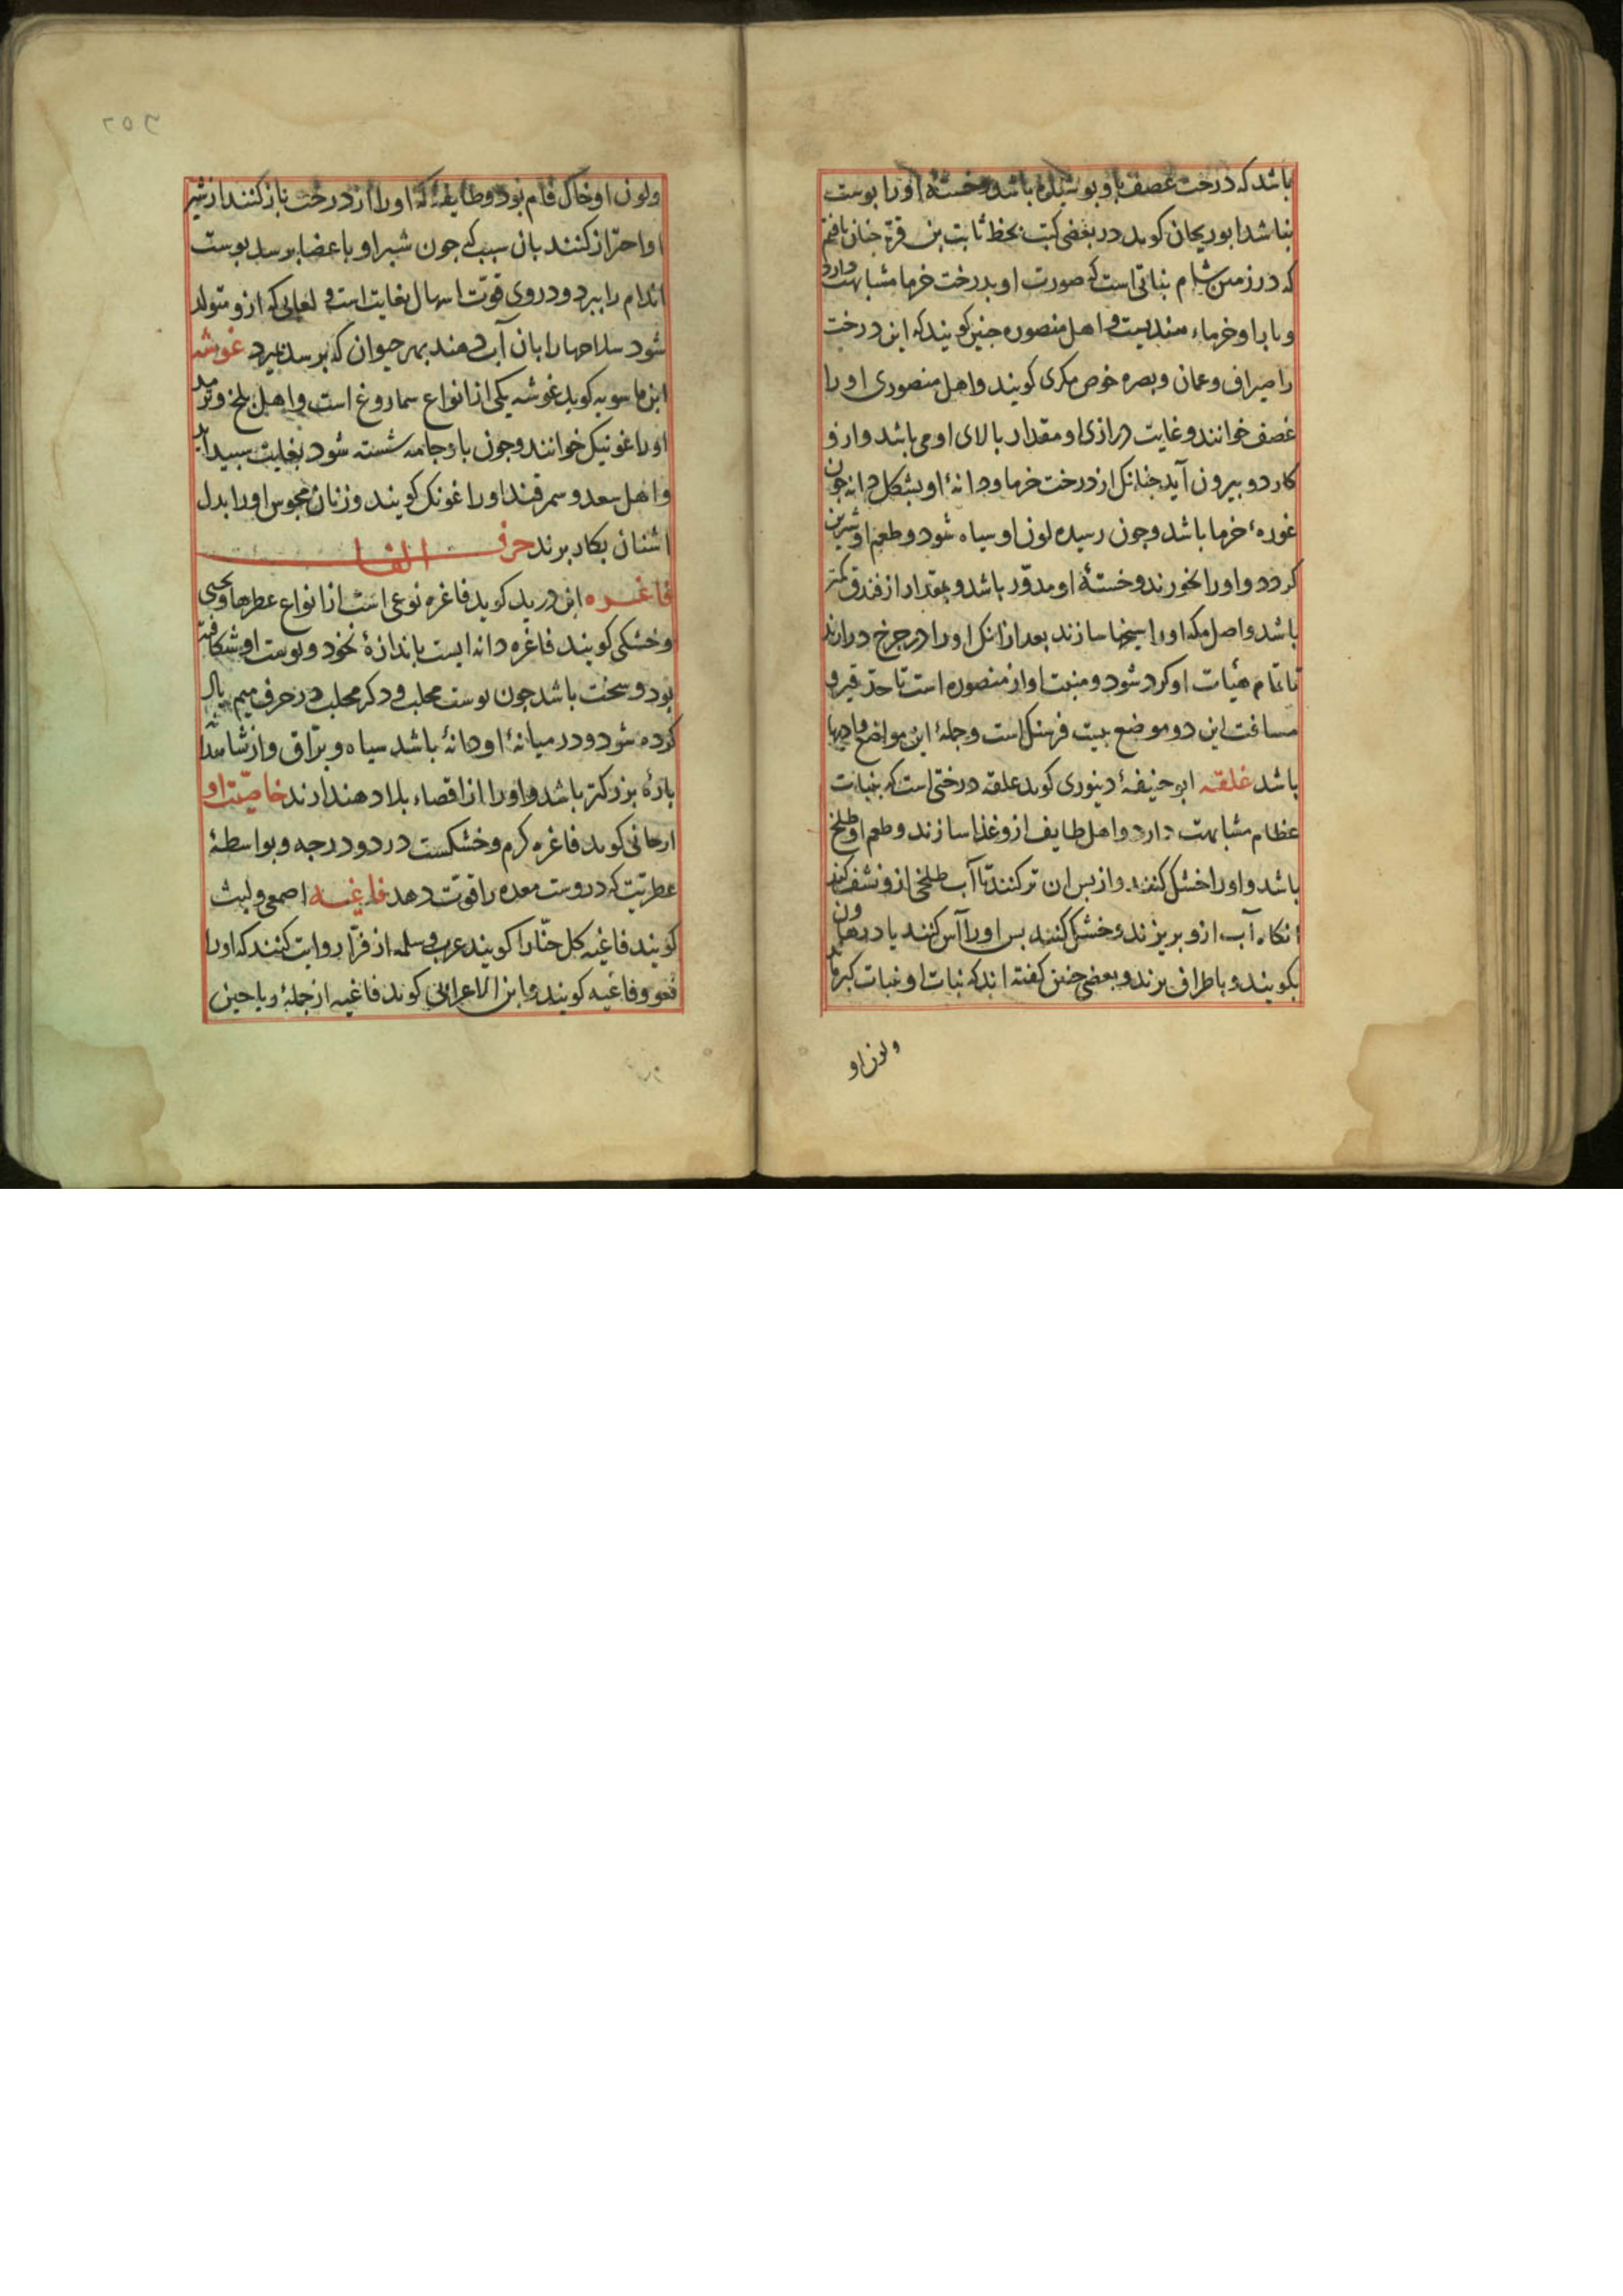 باشد که درخت غصف باو بوشیده باشد و خسته اورا بوست
نباشد ابوریحان کوید در بعضی کتب بخط ثابت بن قره جنان یافتم
که در زمین شام نباتی است که صورت او بدرخت خرما مشابهت دارد
و بار او خرماء هندیست و اهل منصوره جنین کویند که این درخت
را صیراف و عمان و بصره خوص مکری کویند و اهل منصوری اورا
غصف خوانند و غایت درازی او مقدار بالای او می باشد و ازو
کاردو بیرون آید جنانک از درخت خرما و دانهٔ او بشکل دانه جون
غورهٔ خرما باشد و جون رسیده لون او سیاه شود و طعم او شیرین
کردد و اورا بخورند و خستهٔ او مدوّر باشد و بمقدار از فندق کمتر
باشد و اصل مکه اورا سبحها سازند بعد از انک اورا در جرخ درارند
تا تمام هیئات او کرد شود و منبت او از منصوره است تا حد قیرو
مسافت این دو موضع بیست فرسنک است و جملهٔ این مواضع وادیها
باشد غلقه ابو حنیفهٔ دینوری کوید علقه درختی است که بنبات
عظام مشابهت دارد و اهل طایف ازو غذا سازند و طعم او طلخ
باشد و اورا خشک کنند و از بس ان تر کنند تا آب طلخی ازو نشف کند
انکاه آب ازو بریزند و خشک کنند بس اورا آس کنند یا در هاون
بکویند و باطراف برند و بعضی جنین کفته اند که نبات او نبات کبر ماند
ولون او
۲۵۶
ولون او خاک فام بود و طایفهٔ که اورا از درخت باز کنند از شیر
او احتراز کنند بان سبب که جون شیر او باعضا برسد بوست
اندام را ببرد و دروی قوّت اسهال بغایت است و لعابی که ازو متولد
شود سلاحها را بان آب دهند بهر حیوان که برسد بمیرد غوشه
ابن ماسویه کوید غوشه یکی از انواع سماروغ است و اهل بلخ و ترمد
اورا غونیک خوانند و جون باو جامه شسته شود بغایت سبید آید
و اهل سعد و سمرقند اورا غونک کویند و زنان مجوس اورا بدل
اشنان بکار برند حرف الفا
فاغره ابن درید کوید فاغره نوعی است از انواع عطرها و یحیی
و خشکی کویند فاغره دانه ایست باندازهٔ نخود و بوست او شکافته
بود و سخت باشد جون بوست محلب و دکر محلب در حرف میم یاد
کرده شود و در میانهٔ او دانهٔ باشد سیاه و برّاق و از شاهدانه
بارهٔ بزرکتر باشد و اورا از اقصاء بلاد هند ارند خاصیّت او
ارجانی کوید فاغره کرم و خشکست در دو درجه و بواسطهٔ
عطریّت که دروست معده را قوّت دهد فاغیه اصمعی و لیث
کویند فاغیه کل حنّا را کویند عرب و سلمه از فرّا روایت کنند که اورا
فغو و فاغیه کویند و ابن الاعرابی کوید فاغیه از جملهٔ ریاحین